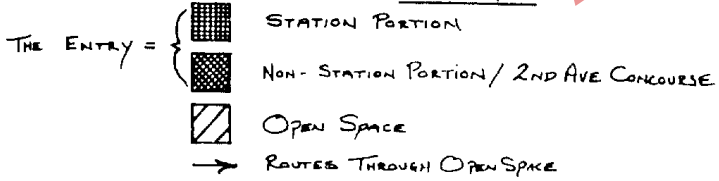 STATION PORTION
THE ENTRY =
NON-STATION PORTION / 2ND AVE CONCOURSE
OPEN SPACE
ROUTES THROUGH OPEN SPACE